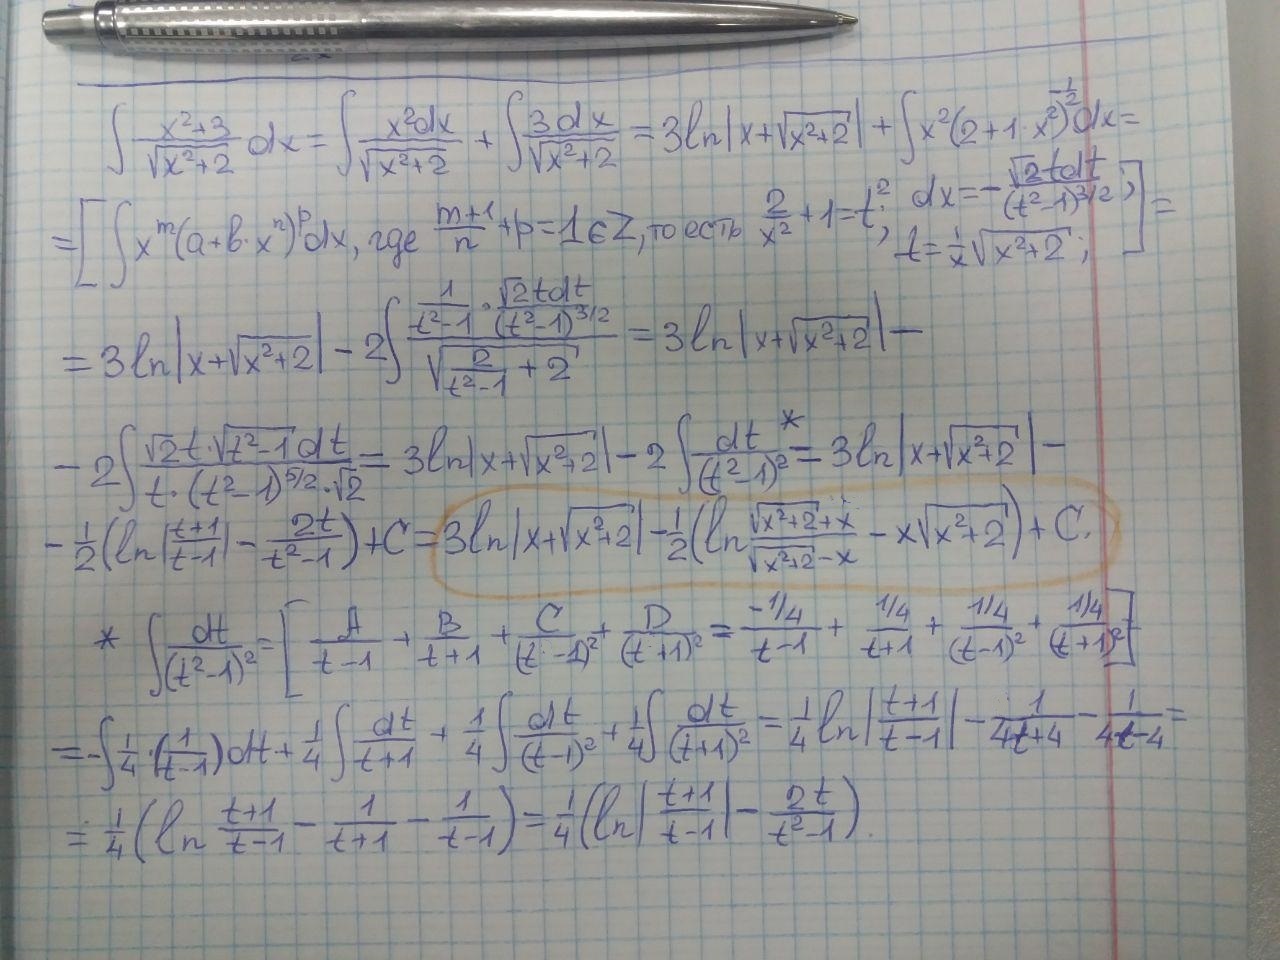 ∫ (x²+3)/√(x²+2) dx = ∫ x²dx/√(x²+2) + ∫ 3dx/√(x²+2) = 3ln|x+√(x²+2)| + ∫x²(2+1·x²)^(-1/2)dx =
= [∫x^m(a+b·x^n)^p dx, где (m+1)/n + p = 1 ∈ Z, то есть 2/x² + 1 = t²; dx = -√2tdt/(t²-1)^(3/2); t = 1/x √(x²+2);] =
= 3ln|x+√(x²+2)| - 2∫ (1/(t²-1) · √2tdt/(t²-1)^(3/2))/√(2/(t²-1) + 2) = 3ln|x+√(x²+2)| -
- 2∫ √2t·√(t²-1)dt/(t·(t²-1)^(5/2)·√2) = 3ln|x+√(x²+2)| - 2∫ dt/(t²-1)² *= 3ln|x+√(x²+2)| -
- 1/2(ln|(t+1)/(t-1)| - 2t/(t²-1)) + C = 3ln|x+√(x²+2)| - 1/2(ln (√(x²+2)+x)/(√(x²+2)-x) - x√(x²+2)) + C.
* ∫ dt/(t²-1)² = [A/(t-1) + B/(t+1) + C/(t-1)² + D/(t+1)² = (-1/4)/(t-1) + (1/4)/(t+1) + (1/4)/(t-1)² + (1/4)/(t+1)²] =
= -∫ 1/4·(1/(t-1))dt + 1/4∫ dt/(t+1) + 1/4∫ dt/(t-1)² + 1/4∫ dt/(t+1)² = 1/4 ln|(t+1)/(t-1)| - 1/(4t+4) - 1/(4t-4) =
= 1/4(ln (t+1)/(t-1) - 1/(t+1) - 1/(t-1)) = 1/4(ln|(t+1)/(t-1)| - 2t/(t²-1)).